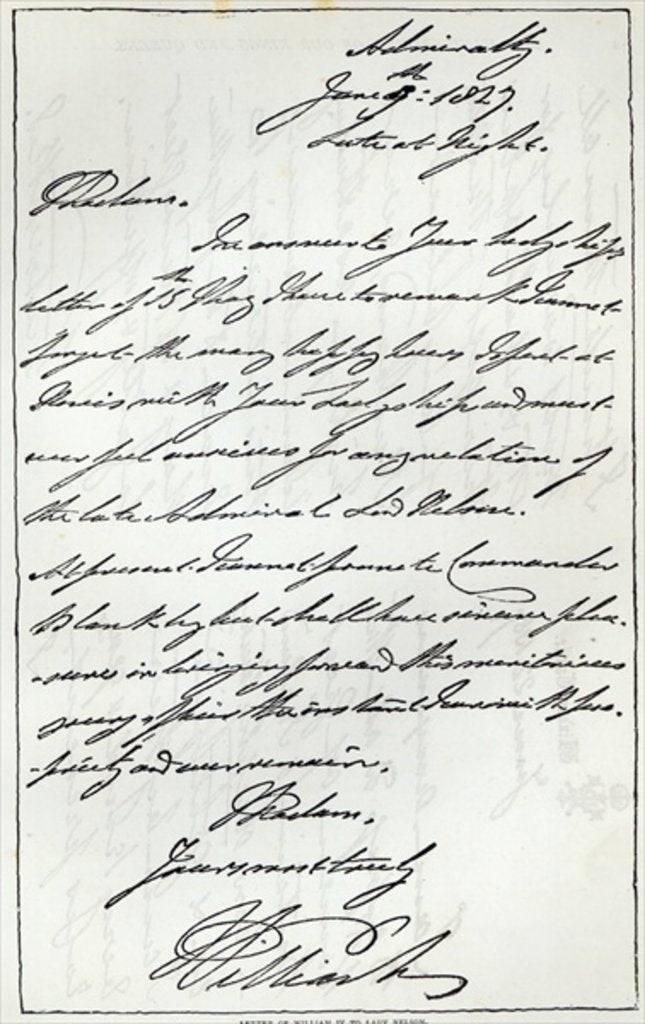 Admiralty.
June 8th: 1827.
Late at Night.
Madam.
In answer to Your Ladyship's
letter of 15th May I have to remark I cannot
forget the many happy hours I spent at
Nevis with Your Ladyship and must
ever feel anxious for any relation of
the late Admiral Lord Nelson.
At present I cannot promote Commander
Blanckley but shall have sincere plea-
-sure in bringing forward this meritorious
young officer the instant I can with pro-
-priety and ever remain.
Madam.
Yours most truly
William
LETTER OF WILLIAM IV TO LADY NELSON.